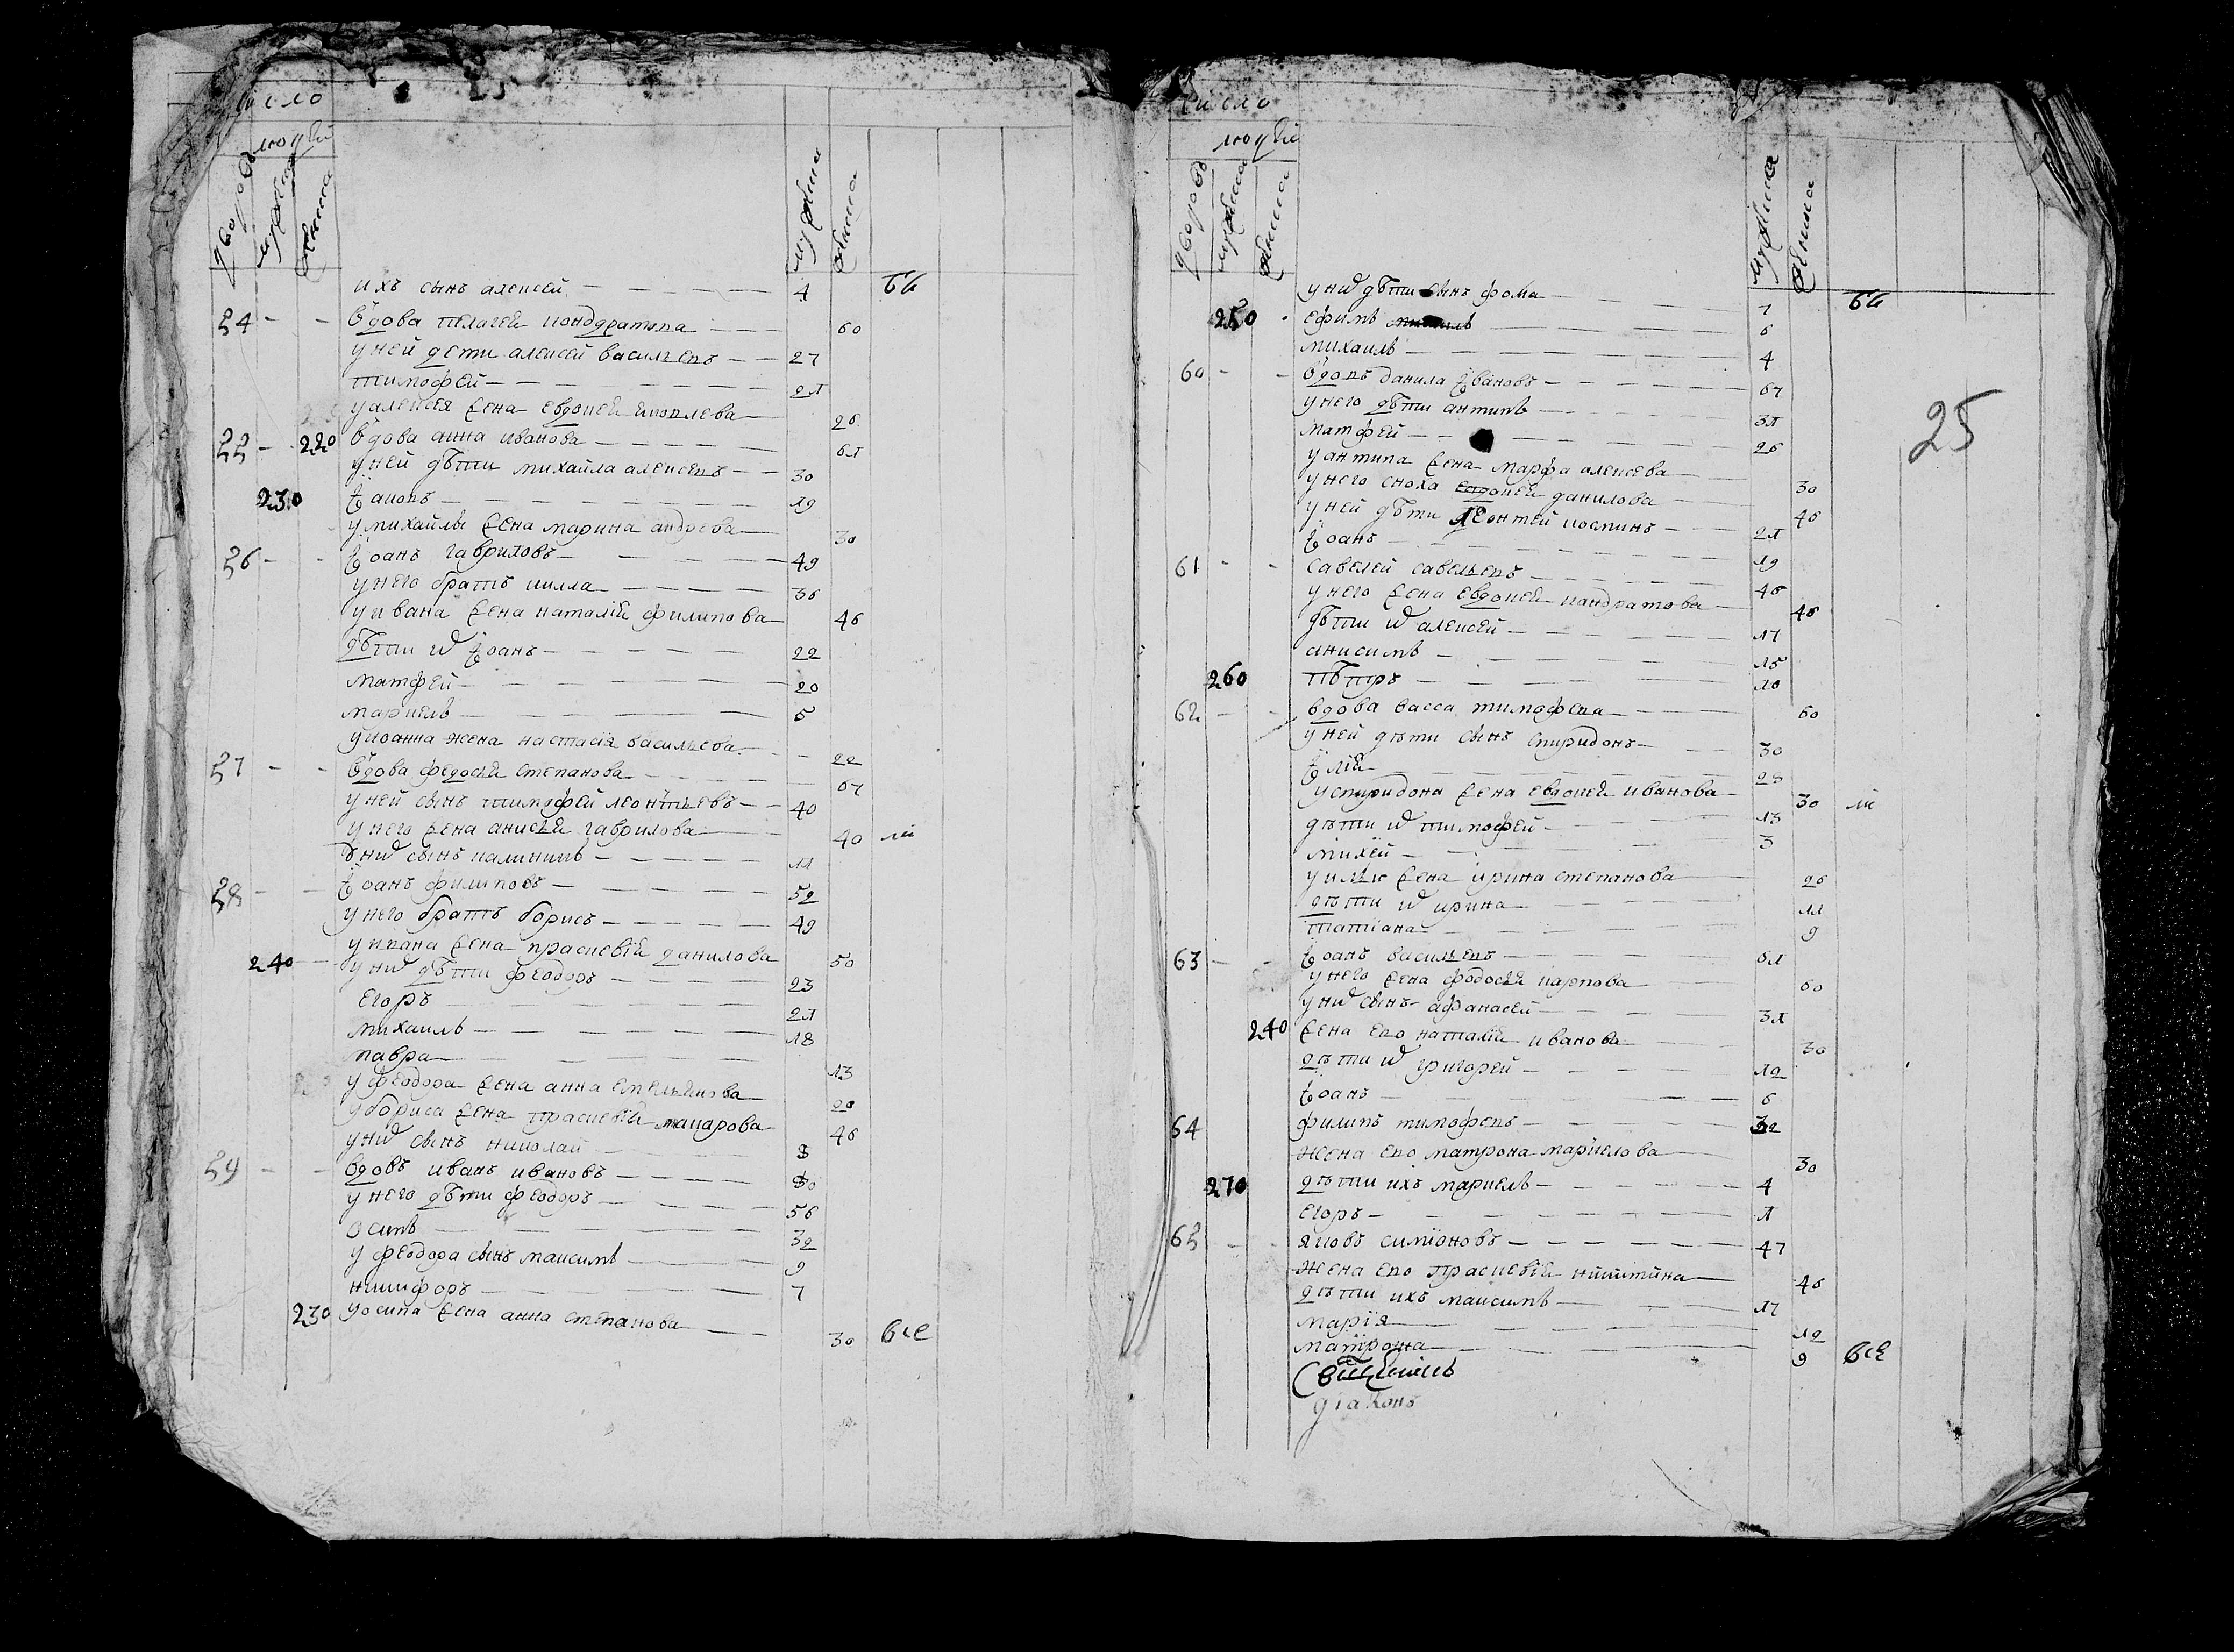 число
людей
дворовъ
мужеска
женска
мужеска
женска
ихъ сынъ алексей 4 бы
54 вдова пелагей кондратова 60
у ней дети алексей васильевъ 27
тимофей 21
у алексея жена евдокей яковлева 26
55 220 вдова анна иванова 61
у ней дѣти михайла алексевъ 30
230 яковъ 19
у михайлы жена марина андрева 30
56 іоанъ гавриловъ 49
у него братъ килла 36
у ивана жена наталїй филипова 46
дѣти их іоанъ 22
матфей 20
маркелъ 5
у иоанна жена настасїя васильева 22
57 вдова федосья степанова 67
у ней сынъ тимофей леонтьевъ 40
у него жена анисья гаврилова 40
у них сынъ калинникъ 11
58 іоанъ филиповъ 52
у него братъ борисъ 49
у ивана жена прасневїй данилова 50
240 у них дѣти феодоръ 23
егоръ 21
михаилъ 18
мавра 13
у феодора жена анна емельянова 20
у бориса жена прасневїй макарова 46
у них сынъ николай 8
59 вдовъ иванъ ивановъ 80
у него дѣти феодоръ 56
осипъ 32
у феодора сынъ максимъ 9
никифоръ 7
230 у осипа жена анна степанова 30 все
число
людей
дворовъ
мужеска
женска
мужеска
женска
25
у них дѣти сынъ фома 7 бы
250 ефимъ 6
михаилъ 4
60 вдовъ данила івановъ 67
у него дѣти антипъ 31
матфей 26
у антипа жена марфа алексева 30
у него сноха евдокей данилова 46
у ней дѣти леонтей косминъ 21
іоанъ 19
61 савелей савельевъ 46
у него жена евдокей кандратова 46
дѣти их алексей 17
анисимъ 15
260 пѣтръ 10
62 вдова васса тимофева 60
у ней дѣти сынъ спиридонъ 30
їлїй 25
у спиридона жена евдокей иванова 30
дѣти их тимофей 13
михей 3
у ильи жена ирина степанова 26
дѣти их ирина 11
татїана 9
63 іоанъ васильевъ 61
у него жена фодосья карпова 60
у них сынъ афанасей 31
240 жена ево наталїй иванова 30
дѣти их григорей 12
іоанъ 6
64 филипъ тимофевъ 32
жена ево матрона маркелова 30
270 дѣти ихъ маркелъ 4
егоръ 1
65 яковъ симїоновъ 47
жена ево прасневїй никитина 46
дѣти ихъ максимъ 17
марїя 12
матрона 9 все
дїаконъ